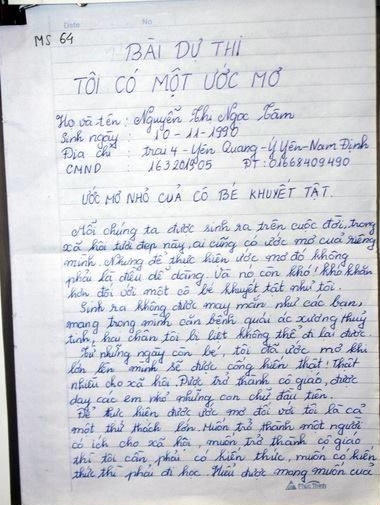 Date
No
MS 64
BÀI DỰ THI
TÔI CÓ MỘT ƯỚC MƠ
Họ và tên : Nguyễn Thị Ngọc Tâm
Sinh ngày : 10 - 11 - 1990
Địa chỉ : trại 4 - Yên Quang - Ý Yên - Nam Định
CMND : 163201905 ĐT : 01668409490
ƯỚC MƠ NHỎ CỦA CÔ BÉ KHUYẾT TẬT.
Mỗi chúng ta được sinh ra trên cuộc đời, trong
xã hội tươi đẹp này, ai cũng có ước mơ của riêng
mình. Nhưng để thực hiện ước mơ đó không
phải là điều dễ dàng. Và nó còn khó! khó khăn
hơn đối với một cô bé khuyết tật như tôi.
Sinh ra không được may mắn như các bạn,
mang trong mình căn bệnh quái ác xương thuỷ
tinh, hai chân tôi bị liệt không thể đi lại được.
Từ những ngày còn bé, tôi đã ước mơ khi
lớn lên mình sẽ được cống hiến thật! thật
nhiều cho xã hội. Được trở thành cô giáo, được
dạy các em nhỏ những con chữ đầu tiên.
Để thực hiện được ước mơ đối với tôi là cả
một thử thách lớn. Muốn trở thành một người
có ích cho xã hội, muốn trở thành cô giáo
thì tôi cần phải có kiến thức, muốn có kiến
thức thì phải đi học. Hiểu được mong muốn của